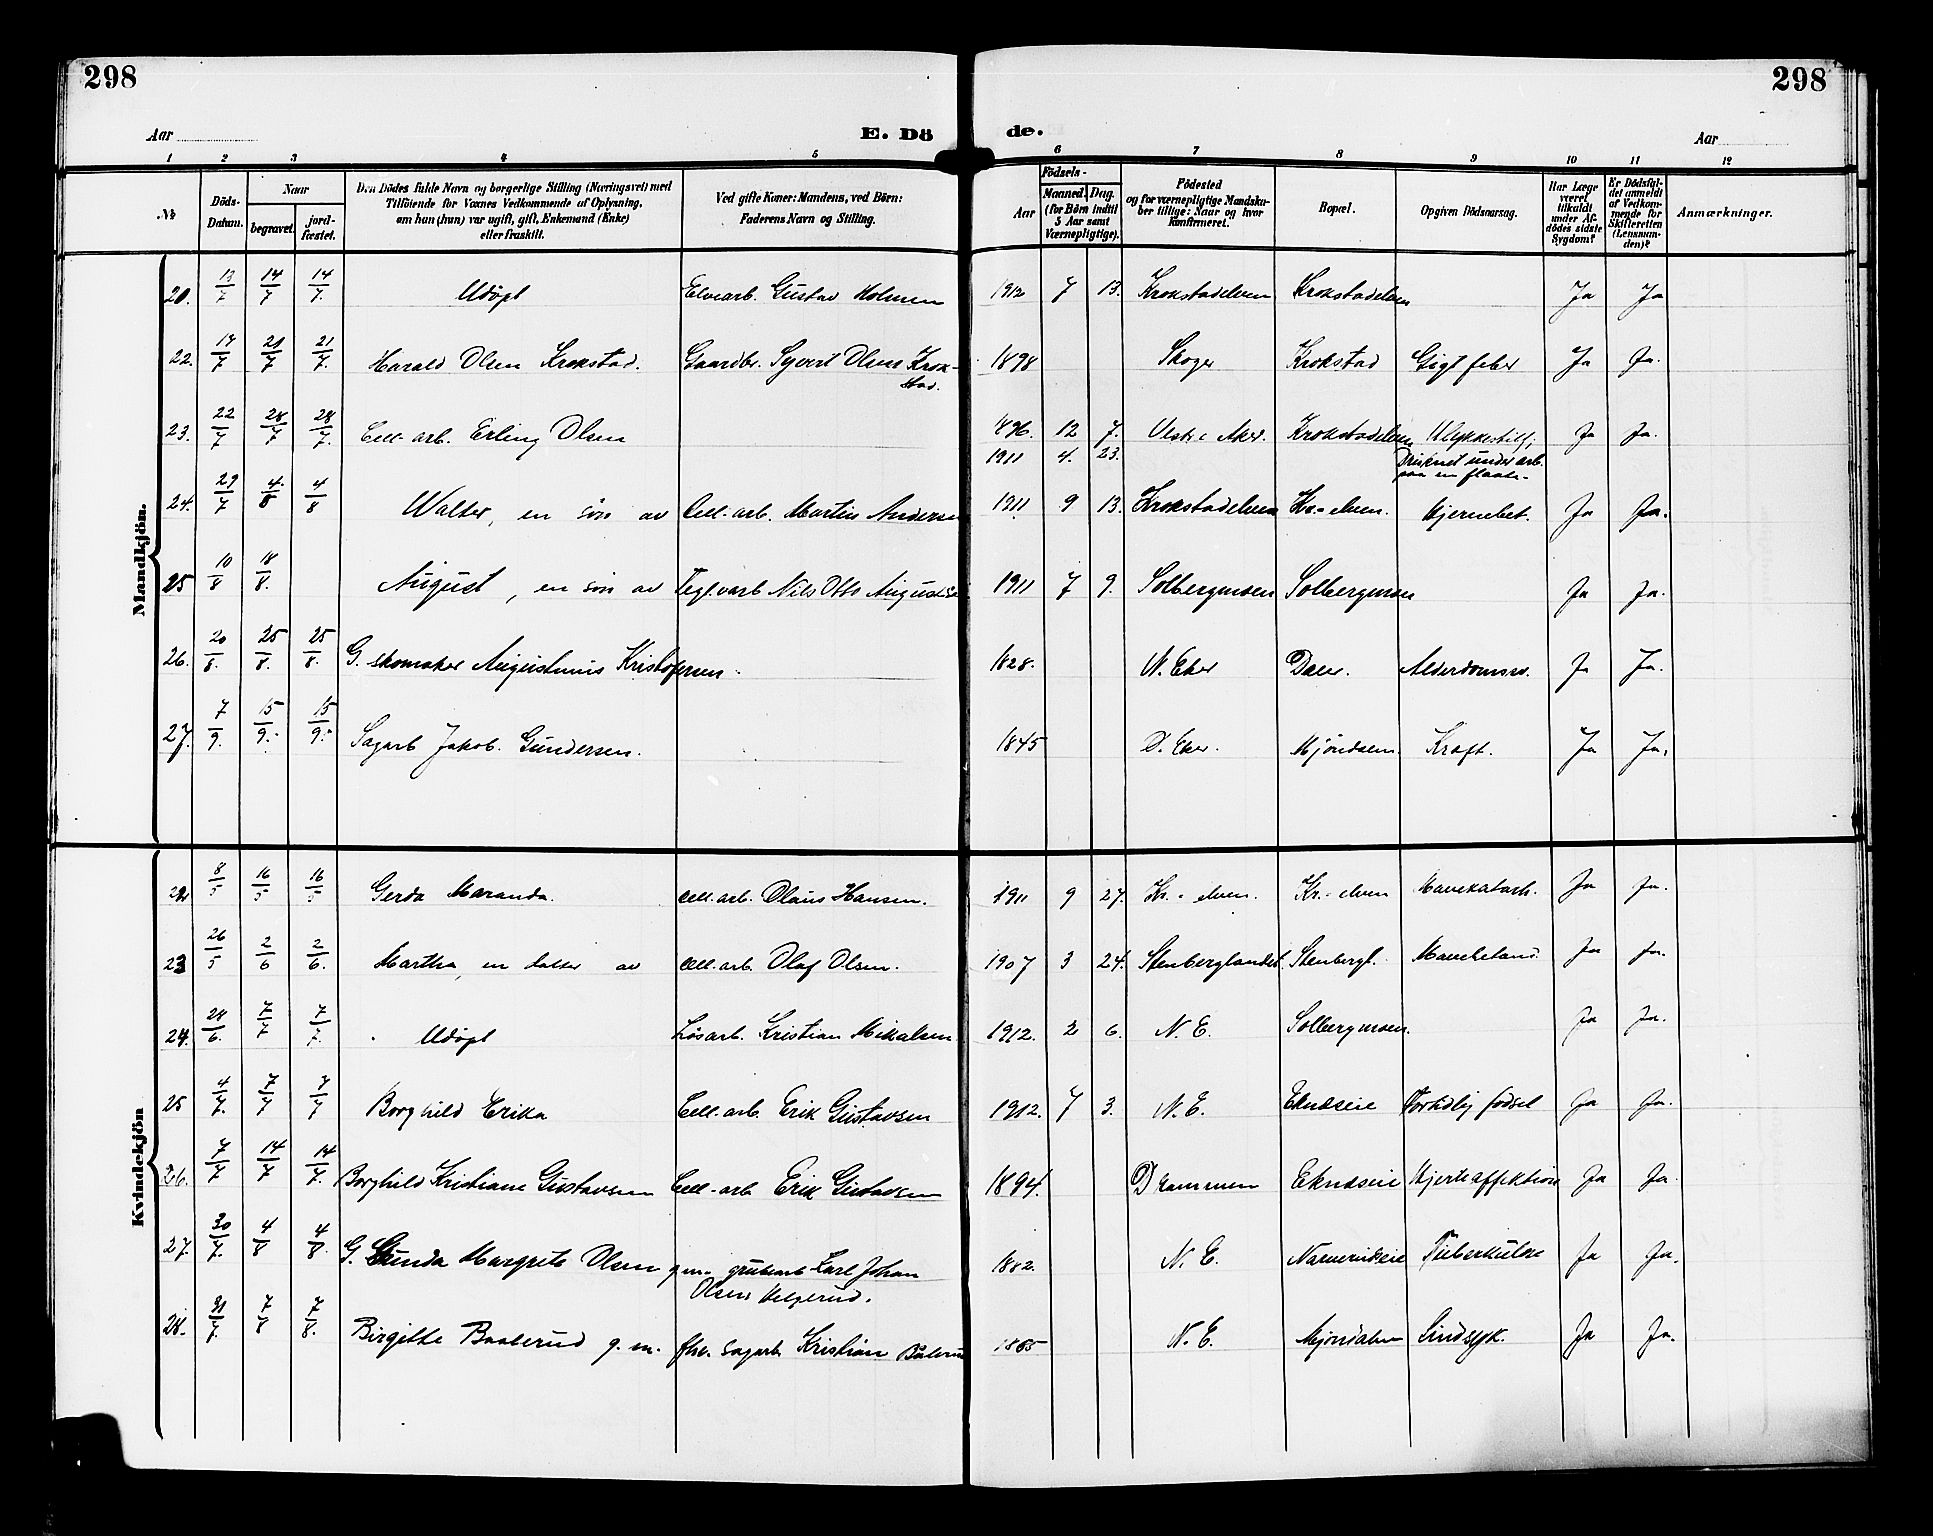 298
298
Aar
E. Dö
de.
Aar
1 2 3 4 5 6 7 8 9 10 11 12
№
Döds-Datum.
Naar
begravet.
jord-fæstet.
Den Dödes fulde Navn og borgerlige Stilling (Næringsvei) med
Tilföiende for Voxnes Vedkommende af Oplysning,
om han (hun) var ugift, gift, Enkemand (Enke)
eller fraskilt.
Ved gifte Koner: Mandens, ved Börn:
Faderens Navn og Stilling.
Födsels-
Aar
Maaned.
Dag.
(for Börn indtil
5 Aar samt
Værnepligtige).
Födested
og for værnepligtige Mandska-
ber tillige: Naar og hvor
konfirmeret.
Bopæl.
Opgiven Dödsaarsag.
Har Læge
været
tilkaldt
under Af-
dödes sidste
Sygdom?
Er Dödsfal-
det anmeldt
af Vedkom-
mende for
Skifteretten
(Lensman-
den)?
Anmærkninger.
Mandkjön.
21. 13/7 14/7 14/7. Udøpt Elvearb. Gustav Holmen 1912 7 13. Krokstadelven Krokstadelven Ja Ja
22. 17/7 21/7 21/7. Harald Olsen Krokstad. Gaardbr. Syvert Olsen Krok-
stad. 1898 Skoger Krokstad Gigtfeber Ja Ja.
23. 22/7 28/7 28/7. Cell-arb. Erling Olsen 1896. 12 7. Vestre Aker. Krokstadelven Ulykkestilf;
1911 4. 23. Druknet under arb.
paa en flaate.
24. 29/7 4/8 4/8 Walter, en søn av Cell-arb. Martin Andersen 1911. 9 13. Krokstadelven Kr.-elven. Hjernebet. Ja Ja.
25 10/8 18/8. August, en søn av Teglv.arb Nils Otto Augustsen 1911 7 9. Solbergmoen Solbergmoen Ja Ja.
26. 20/8. 25/8. 25/8. G. skomaker Augustinus Kristofersen. 1828. N. Eker Daler. Alderdomssv. Ja Ja.
27. 7/9. 15/9. 15/9. Sagarb Jakob Gundersen. 1845 Ø. Eker. Mjöndalen. Kræft. Ja Ja.
Kvindekjön
22 8/5 16/5 16/5 Gerda Maranda. Cell-arb. Olaus Hansen. 1911 9 27. Kr.-elven. Kr.-elven Mavekatarh. Ja Ja.
23 26/5 2/6 2/6. Martha, en datter av Cell-arb. Olaf Olsen. 1907 3 24. Stenberglandet. Stenbergl. Ja Ja.
24. 28/6. 7/7 7/7. Udøpt Løsarb. Kristian Mikalsen. 1912. 2 6. N. E. Solbergmoen. Ja Ja.
25 4/7. 7/7 7/7 Borghild Erika Cell-arb. Erik Gustavsen 1912. 7 3. N. E. Eknæseie Fortidlig fødsel Ja Ja.
26. 7/7 14/7 14/7. Borghild Kristiane Gustavsen Cell-arb Erik Gustavsen 1894. Drammen Eknæseie Hjerteaffektion Ja Ja.
27. 30/7. 4/8 4/8. G. Gunda Margrete Olsen g.m. grubearb Karl Johan
Olsen Helgerud. 1882. N. E. Tuberkulose Ja Ja.
28. 31/7. 7/8 7/8. Birgitte Baalerud g. m. fhv. sagarb Kristian Bålerud 1865 N. E. Mjøndalen Sindsyk. Ja Ja.